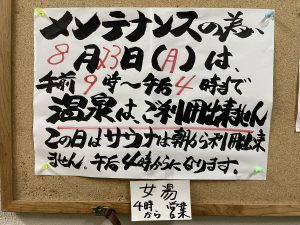 メンテナンスの為、
8月23日(月)は、
午前9時～午後4時まで
温泉は、ご利用出来ません
この日はサウナは朝から利用出来
ません。午后4時からになります。
女湯
4時から営業